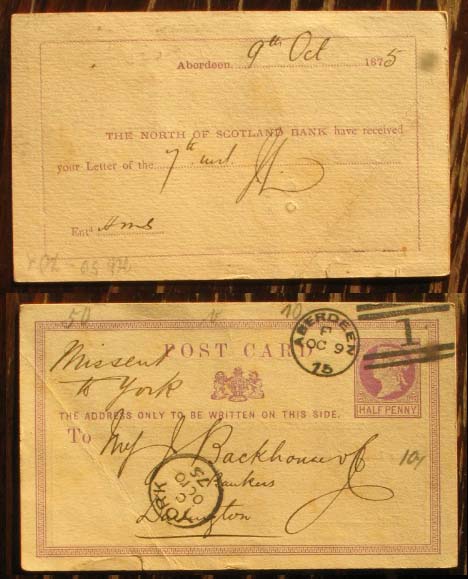 Aberdeen 9th Oct 1875
THE NORTH OF SCOTLAND BANK have received
your Letter of the 7th inst.
Entd
50 10
Missent
to York
POST CARD
ABERDEEN
OC 9
75
1
HALF PENNY
THE ADDRESS ONLY TO BE WRITTEN ON THIS SIDE.
To J Backhouse
Bankers
Darlington
YORK
C
OC 10
75